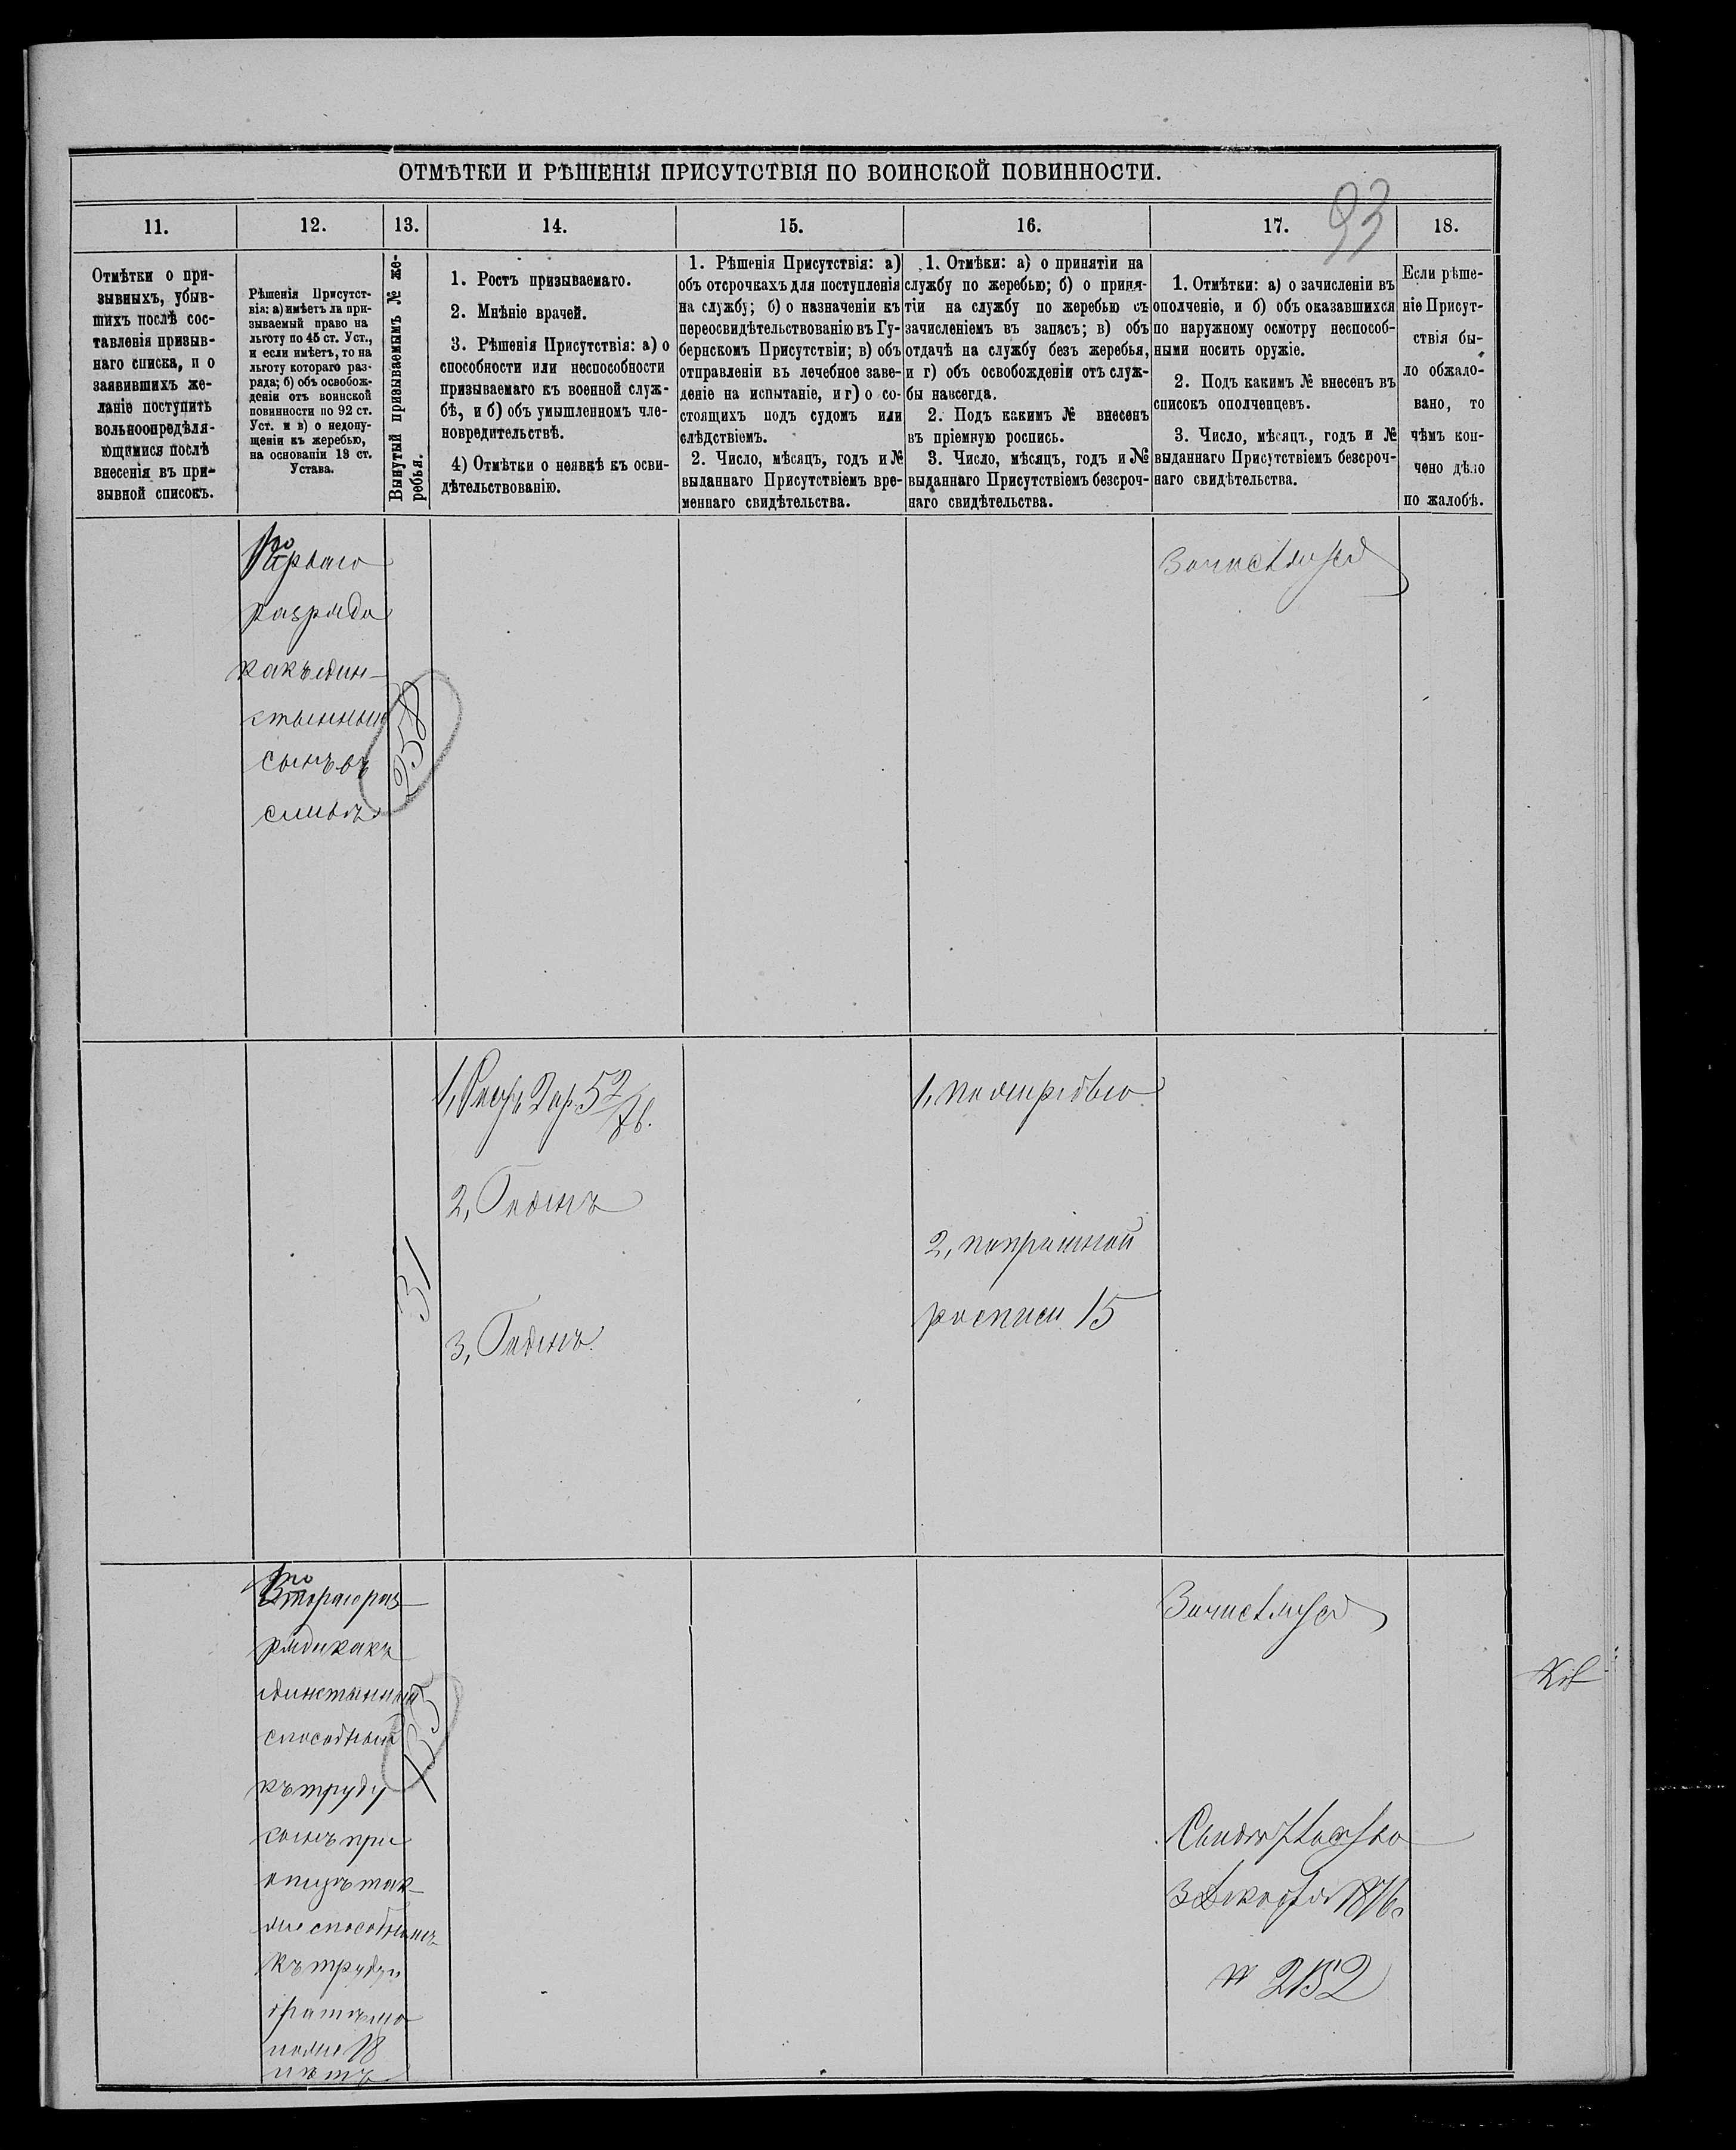 ОТМѢТКИ И РѢШЕНІЯ ПРИСУТСТВІЯ ПО ВОИНСКОЙ ПОВИННОСТИ.
93
11.
12.
13.
14.
15.
16.
17.
18.
Отмѣтки о при-
зывныхъ, убыв-
шихъ послѣ сос-
тавленія призыв-
наго списка, и о
заявившихъ же-
ланіе поступить
вольноопредѣля-
ющимися послѣ
внесенія въ при-
зывной списокъ.
Рѣшенія Присутст-
вія: а) имѣетъ ли при-
зываемый право на
льготу по 45 ст. Уст.,
и если имѣетъ, то на
льготу котораго раз-
ряда; б) объ освобож-
деніи отъ воинской
повинности по 92 ст.
Уст. и в) о недопу-
щеніи къ жеребью,
на основаніи 19 ст.
Устава.
Вынутый призываемымъ № же-
ребья.
1. Ростъ призываемаго.
2. Мнѣніе врачей.
3. Рѣшенія Присутствія: а) о
способности или неспособности
призываемаго къ военной служ-
бѣ, и б) объ умышленномъ чле-
новредительствѣ.
4) Отмѣтки о неявкѣ къ осви-
дѣтельствованію.
1. Рѣшенія Присутствія: а)
объ отсрочкахъ для поступленія
на службу; б) о назначеніи къ
переосвидѣтельствованію въ Гу-
бернскомъ Присутствіи; в) объ
отправленіи въ лечебное заве-
деніе на испытаніе, и г) о со-
стоящихъ подъ судомъ или
слѣдствіемъ.
2. Число, мѣсяцъ, годъ и №
выданнаго Присутствіемъ вре-
меннаго свидѣтельства.
1. Отмѣки: а) о принятіи на
службу по жеребью; б) о приня-
тіи на службу по жеребью съ
зачисленіемъ въ запасъ; в) объ
отдачѣ на службу безъ жеребья,
и г) объ освобожденіи отъ служ-
бы навсегда.
2. Подъ какимъ № внесенъ
въ пріемную роспись.
3. Число, мѣсяцъ, годъ и №
выданнаго Присутствіемъ безсроч-
наго свидѣтельства.
1. Отмѣтки: а) о зачисленіи въ
ополченіе, и б) объ оказавшихся
по наружному осмотру неспособ-
ными носить оружіе.
2. Подъ какимъ № внесенъ въ
списокъ ополченцевъ.
3. Число, мѣсяцъ, годъ и №
выданнаго Присутствіемъ безсроч-
наго свидѣтельства.
Если рѣше-
ніе Присут-
ствія бы-
ло обжало-
вано, то
чѣмъ кон-
чено дѣло
по жалобѣ.
Перваго
разряда
какъ един-
ственный
сынъ въ
семьѣ
258
31
1, Ростъ 2 ар. 5 2/8 в.
2, Годенъ
3, Годенъ.
1, по жеребью
2, по пріемной
росписи 15
Втораго раз-
ряда какъ
единственный
способный
къ труду
сынъ при
отцѣ так-
же способномъ
къ труду и
братѣ мо-
ложе 18
лѣтъ
135
3 Декабря 1876 г.
№ 2152